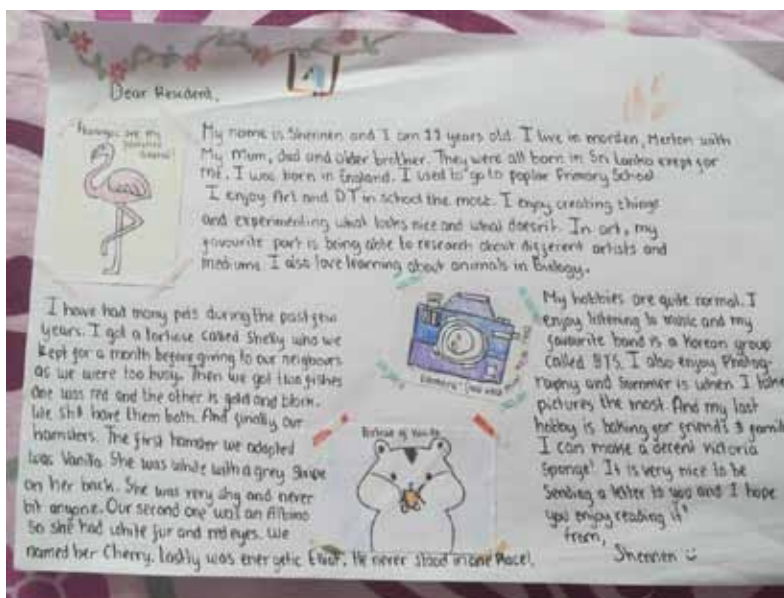 Dear Resident,
Flamingos are my
favourite
animal!
My name is Shennen and I am 11 years old. I live in morden, Merton with
My Mum, dad and older brother. They were all born in Sri Lanka exept for
me. I was born in England. I used to go to poplar Primary School
I enjoy Art and DT in school the most. I enjoy creating things
and experimenting what looks nice and what doesn't. In art, my
favourite part is being able to research about different artists and
mediums. I also love learning about animals in Biology.
I have had many pets during the past few
years. I got a tortoise called Shelly who we
kept for a month before giving to our neighbours
as we were too busy. Then we got two fishes
one was red and the other is gold and black.
We still have them both. And finally our
hamsters. The first hamster we adopted
was Vanilla. She was white with a grey stripe
on her back. She was very shy and never
bit anyone. Our second one was an Albino
So she had white fur and red eyes. We
named her Cherry. Lastly was energetic Elliot. He never stood in one Place!
Portrait of Vanilla
My hobbies are quite normal. I
enjoy listening to music and my
favourite band is a Korean group
called BTS. I also enjoy Photog-
raphy and Summer is when I take
pictures the most. And my last
hobby is baking for friends & family
I can make a decent victoria
Sponge! It is very nice to be
Sending a letter to you and I hope
you enjoy reading it!
from,
Shennen